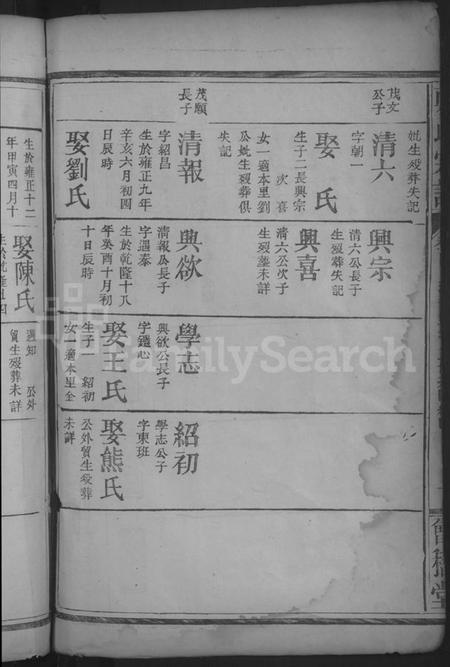 茂文
公子
妣生歿葬失記
清六
字朝一
娶 氏
生子二長興宗
次喜
女一適本里劉
公妣生歿葬俱
失記
茂願
長子
清報
字紹昌
生於雍正九年
辛亥六月初四
日辰時
娶劉氏
興宗
清六公長子
生歿葬失記
興喜
清六公次子
生歿葬未詳
興欲
清報公長子
字遇泰
生於乾隆十八
年癸酉十月初
十日辰時
學志
興欲公長子
字鑑心
娶王氏
生子一 紹初
女一適本里金
紹初
學志公子
字東班
娶熊氏
公外貿生歿葬
未詳
會
堂
生於雍正十二
年甲寅四月十
娶陳氏
生於乾隆
週知 公外
貿生歿葬未詳
FamilySearch